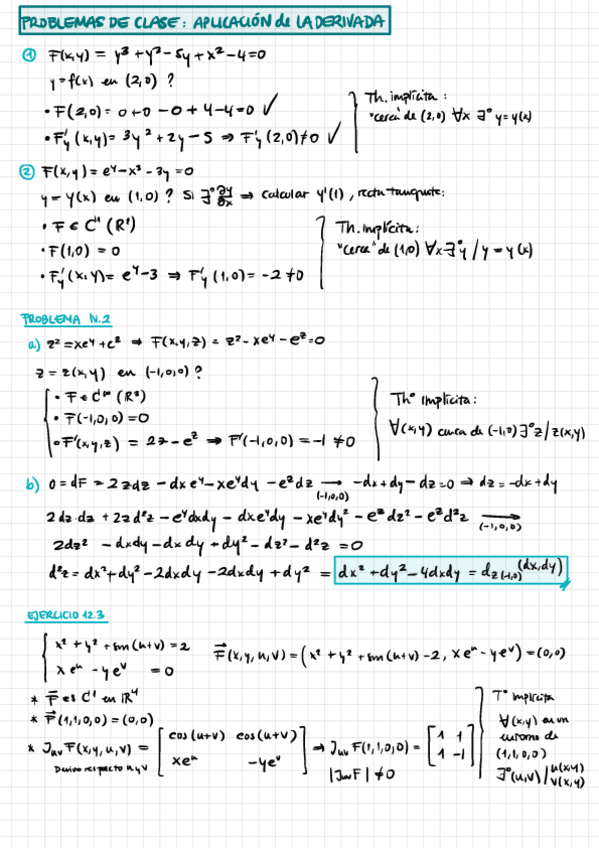 PROBLEMAS DE CLASE: APLICACIÓN de LA DERIVADA
① F(x,y) = y³ + y² - 5y + x² - 4 = 0
y = f(x) en (2,0) ?
• F(2,0) = 0+0-0+4-4=0 ✓
• F'y (x,y) = 3y² + 2y - 5 ⇒ F'y (2,0) ≠ 0 ✓
Th. implícita :
"cerca" de (2,0) ∀x ∃° y = y(x)
② F(x,y) = e^y - x³ - 3y = 0
y = y(x) en (1,0) ? Si ∃° ∂y/∂x ⇒ calcular y'(1), recta tangente:
• F ∈ C¹ (R²)
• F(1,0) = 0
• F'y (x,y) = e^y - 3 ⇒ F'y (1,0) = -2 ≠ 0
Th. implícita:
"cerca" de (1,0) ∀x ∃° y / y = y(x)
PROBLEMA N.2
a) z² = xe^y + e^z ⇒ F(x,y,z) = z² - xe^y - e^z = 0
z = z(x,y) en (-1,0,0) ?
• F ∈ C^∞ (R³)
• F(-1,0,0) = 0
• F'(x,y,z) = 2z - e^z ⇒ F'(-1,0,0) = -1 ≠ 0
Th° Implícita:
∀(x,y) cerca de (-1,0) ∃° z / z(x,y)
b) 0 = dF = 2zdz - dxe^y - xe^y dy - e^z dz → (-1,0,0) -dx + dy - dz = 0 ⇒ dz = -dx + dy
2dz·dz + 2z d²z - e^y dxdy - dxe^y dy - xe^y dy² - e^z dz² - e^z d²z → (-1,0,0)
2dz² - dxdy - dxdy + dy² - dz² - d²z = 0
d²z = dx² + dy² - 2dxdy - 2dxdy + dy² = dx² + dy² - 4dxdy = d z(-1,0) (dx,dy)
EJERCICIO 12.3
x² + y² + sin(u+v) = 2
xe^u - ye^v = 0
F(x,y,u,v) = (x² + y² + sin(u+v) - 2, xe^u - ye^v) = (0,0)
* F es C¹ en R⁴
* F(1,1,0,0) = (0,0)
* Juv F(x,y,u,v) = [cos(u+v) cos(u+v)
xe^u -ye^v] ⇒ Juv F(1,1,0,0) = [1 1
1 -1]
Derivo respecto u y v
|JuvF| ≠ 0
T° implícita
∀(x,y) en un
entorno de
(1,1,0,0)
∃° (u,v) / u(x,y)
v(x,y)